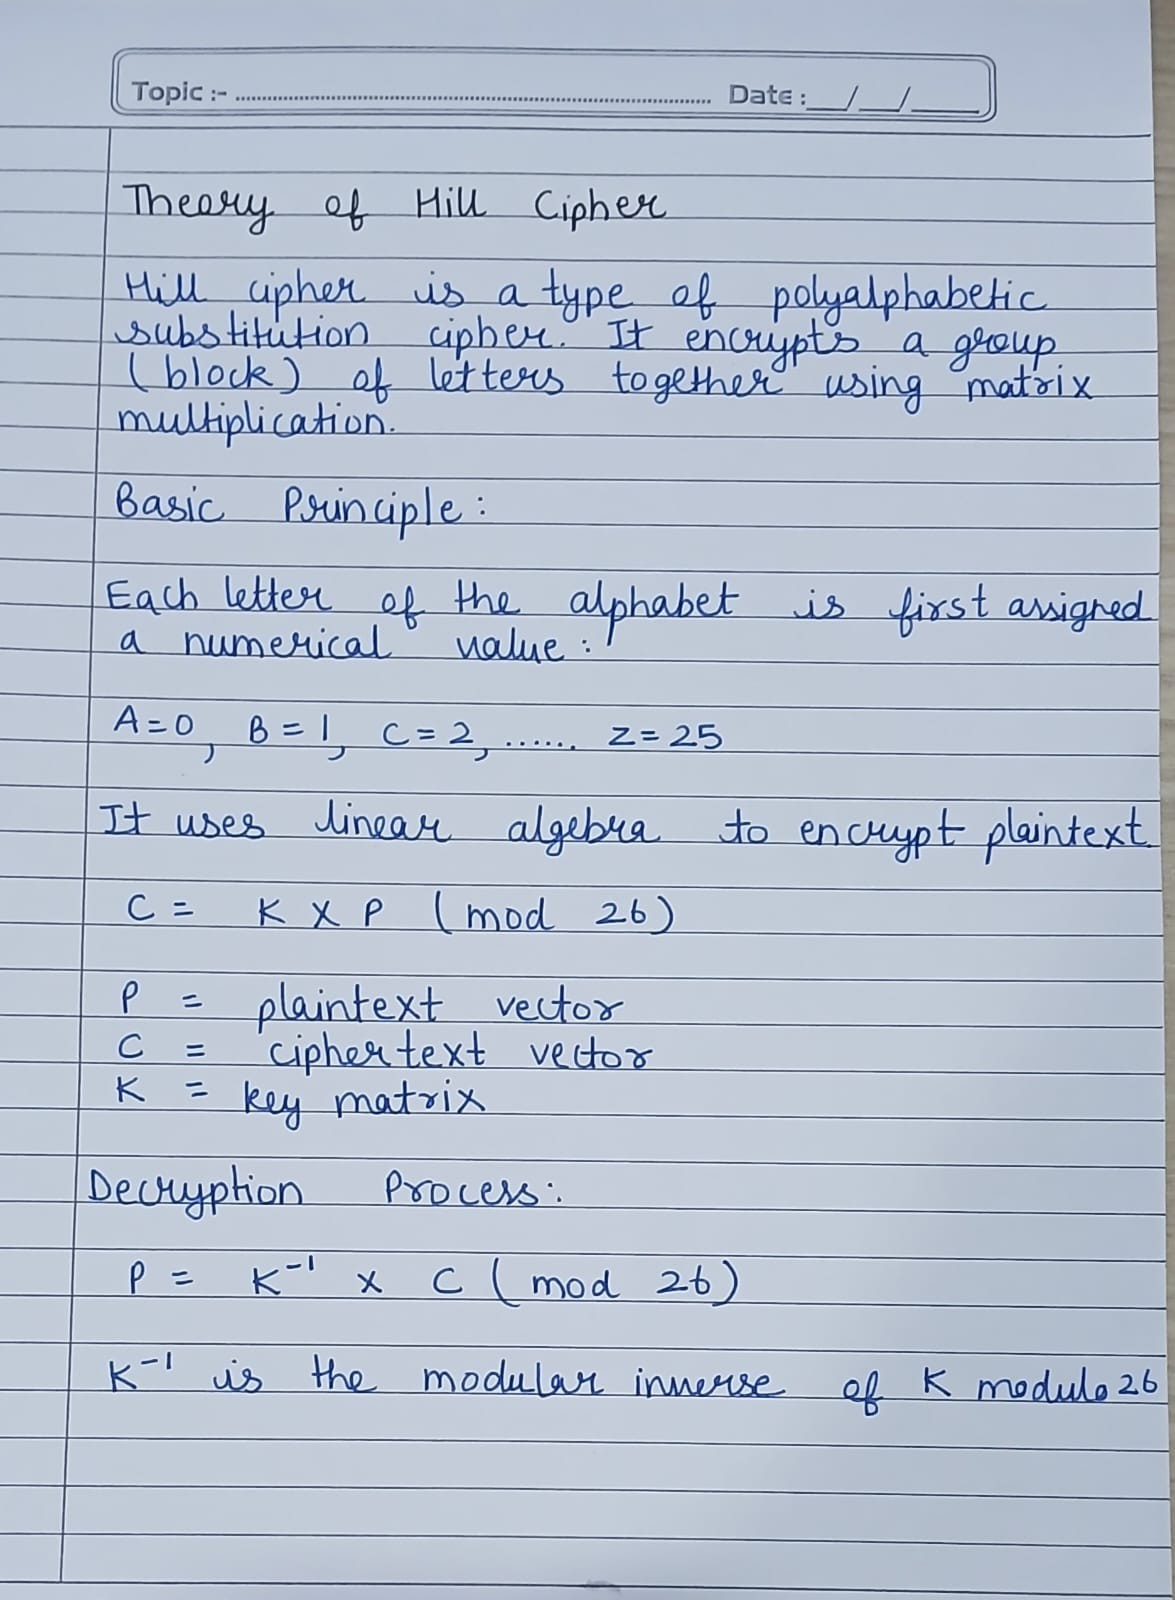 Topic :- ........................ Date : __/__/____
Theory of Hill Cipher
Hill cipher is a type of polyalphabetic
substitution cipher. It encrypts a group
(block) of letters together using matrix
multiplication.
Basic Principle :
Each letter of the alphabet is first assigned
a numerical value :
A=0, B=1, C=2, ...... Z=25
It uses linear algebra to encrypt plaintext
C = K X P (mod 26)
P = plaintext vector
C = ciphertext vector
K = key matrix
Decryption Process:
P = K⁻¹ x C (mod 26)
K⁻¹ is the modular inverse of K modulo 26